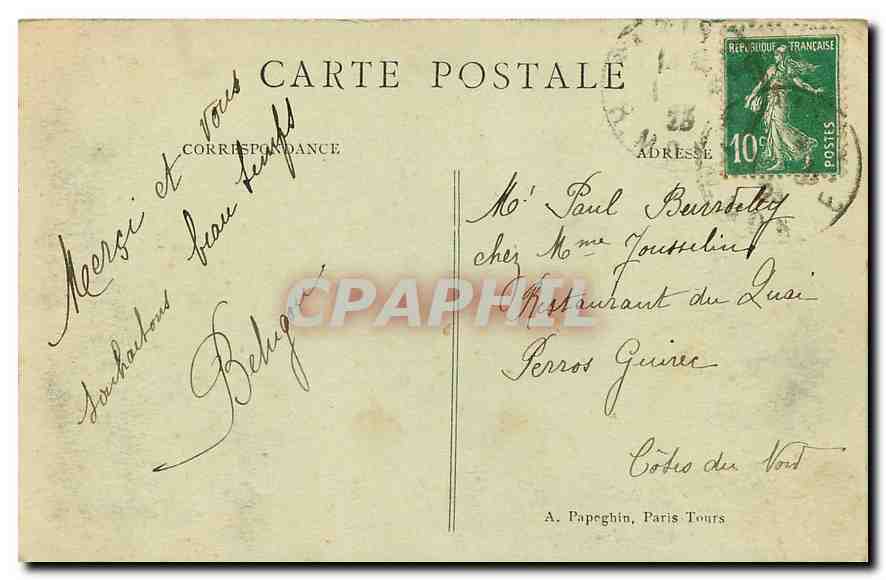 CARTE POSTALE
CORRESPONDANCE
ADRESSE
RÉPUBLIQUE FRANÇAISE
10c
POSTES
23
Merçi et vous
souhaitons beau temps
Mr Paul
chez Mme Jousselin
Restaurant du Quai
Perros Guirec
Côtes du Nord
CPAPHIL
A. Papeghin, Paris-Tours